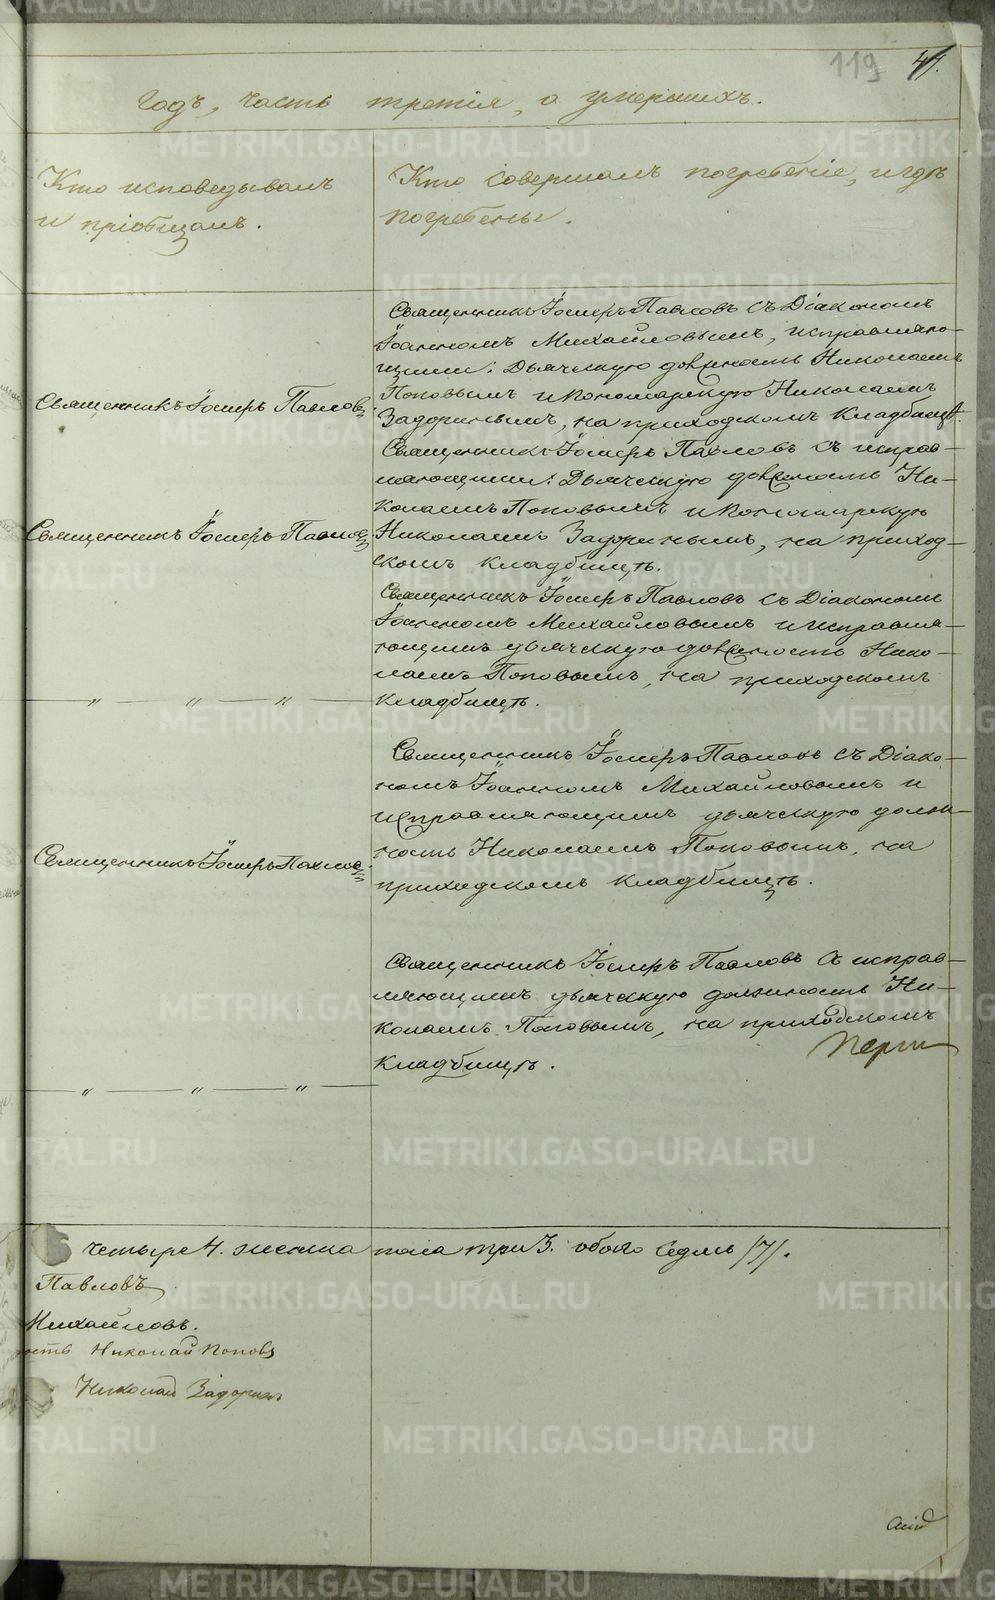 119
годъ, часть третія, о умершихъ.
Кто исповедывалъ
и пріобщалъ.
Кто совершалъ погребеніе, и гдѣ
погребены.
Священникъ Іосифъ Павловъ съ Діакономъ
Іоанномъ Михайловымъ, исправляю-
щими: Дьяческую должность Николаемъ
Поповымъ и Пономарскую Николаемъ
Задоринымъ, на приходскомъ кладбищѣ.
Священникъ Іосифъ Павловъ
Священникъ Іосифъ Павловъ съ исправ-
ляющими: Дьяческую должность Ни-
колаемъ Поповымъ и Пономарскую
Николаемъ Задоринымъ, на приход-
скомъ кладбищѣ.
Священникъ Іосифъ Павловъ
Священникъ Іосифъ Павловъ съ Діакономъ
Іоанномъ Михайловымъ и исправля-
ющимъ дьяческую должность Нико-
лаемъ Поповымъ, на приходскомъ
кладбищѣ.
— „ — „ — „ —
Священникъ Іосифъ Павловъ съ Діако-
номъ Іоанномъ Михайловымъ и
исправляющимъ дьяческую долж-
ность Николаемъ Поповымъ, на
приходскомъ кладбищѣ.
Священникъ Іосифъ Павловъ
Священникъ Іосифъ Павловъ съ исправ-
ляющимъ дьяческую должность Ни-
колаемъ Поповымъ, на приходскомъ
кладбищѣ.
— „ — „ — „ —
четыре 4. женска пола три 3. обоего седмь /7/.
Павловъ
Михайловъ.
ость Николай Поповъ
Николай Задоринъ
METRIKI.GASO-URAL.RU